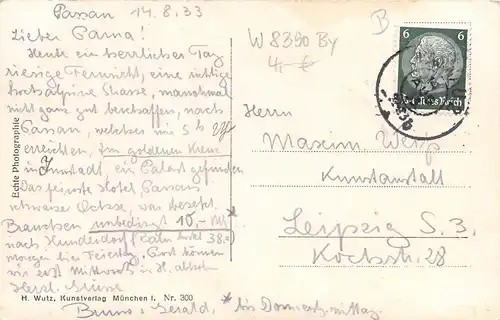 Passau 14.8.33
Lieber Papa!
Heute ein herrlicher Tag
riesige Fernsicht, eine richtige
hochalpine Strasse, manchmal
nicht ganz gut beschaffen, nach
Passau, welches wir 5 h
erreichten. Im goldenen Kreuz
in Innstadt, ein Palast gefunden
Das feinste Hotel Passaus
schwarze Ochse, war besetzt.
Brauchen unbedingt 10,- Mk *
nach Hunderdorf 38.=)
morgen hier Feiertag. Post können
wir erst Mittwoch in H. abholen
Herzl. Grüsse
Bruno + Gerald. * bis Donnerstg. mittag.
H. Wutz, Kunstverlag München I. Nr. 300
Echte Photographie
B
W 8390 By
4,- €
6 6
Deutsches Reich
Herrn
Maxim
Kunstanstalt
Leipzig S. 3.
Kochstr. 28